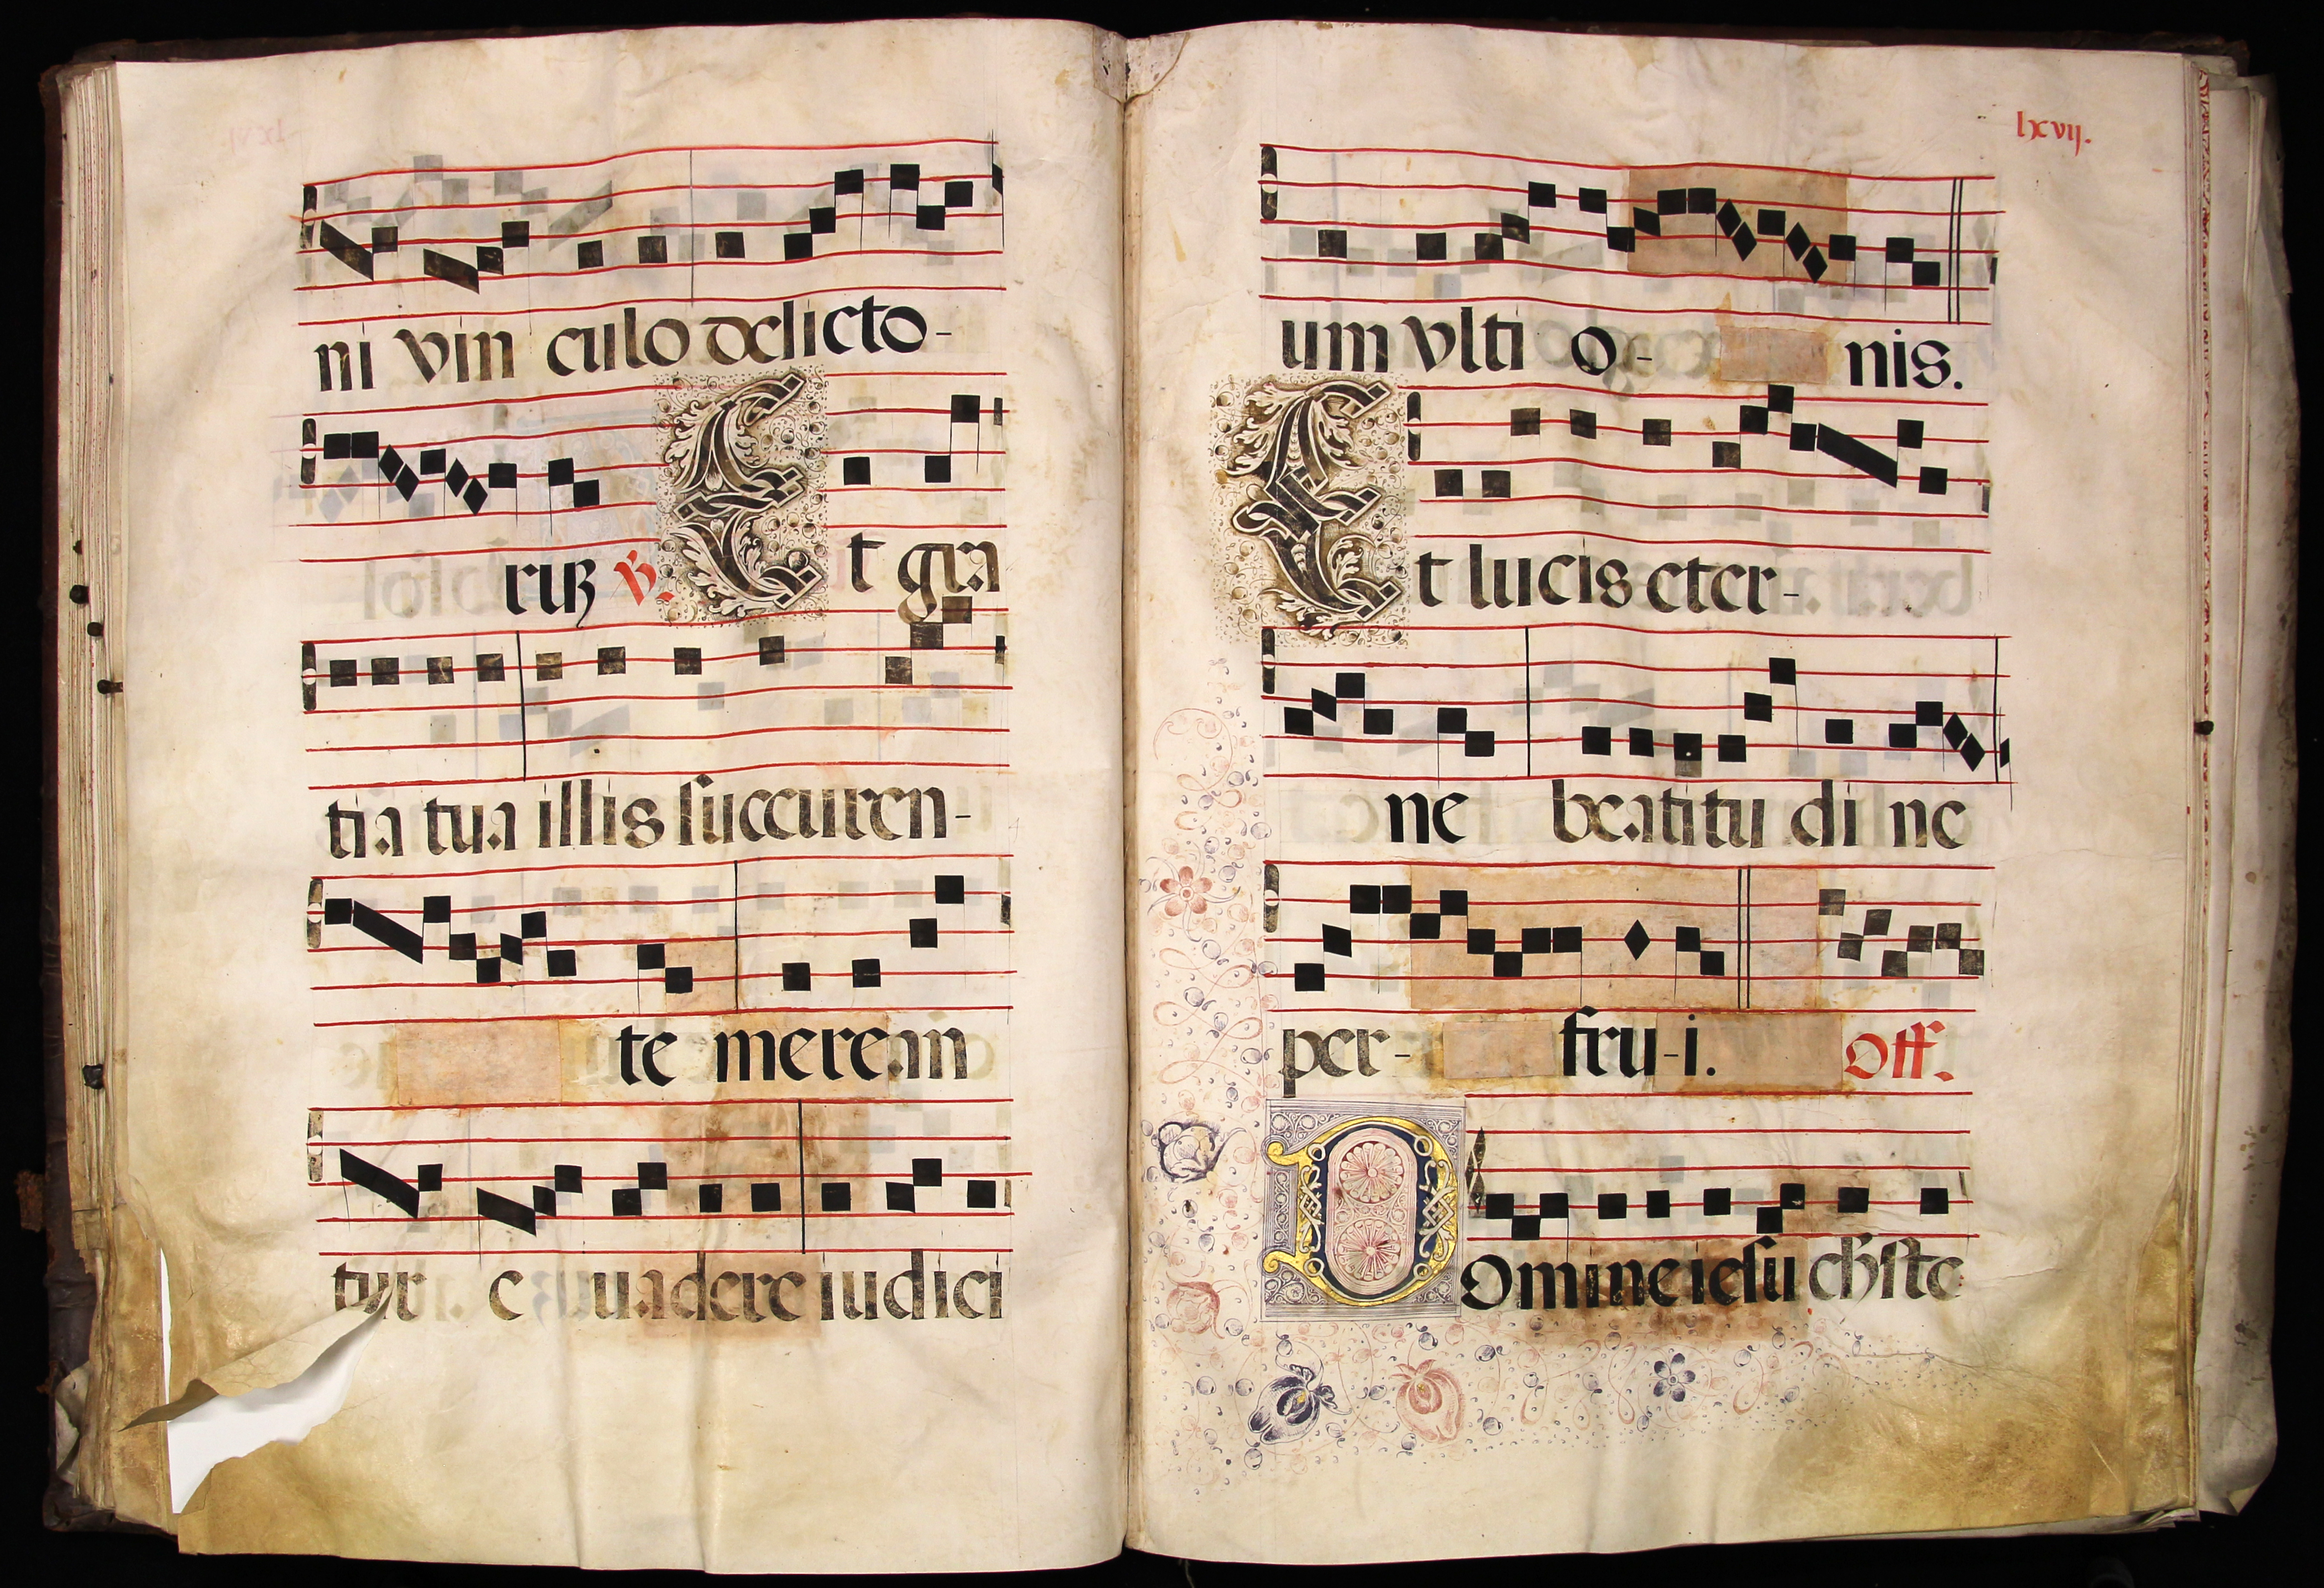 ni vin culo delicto-
ruꝝ ℣. Et gra
tia tua illis succuren-
te merean
tur e uadere iudici
lxvij.
um vlti o- nis.
Et lucis eter-
ne beatitu di ne
per- fru-i. Off.
Domine iesu christe